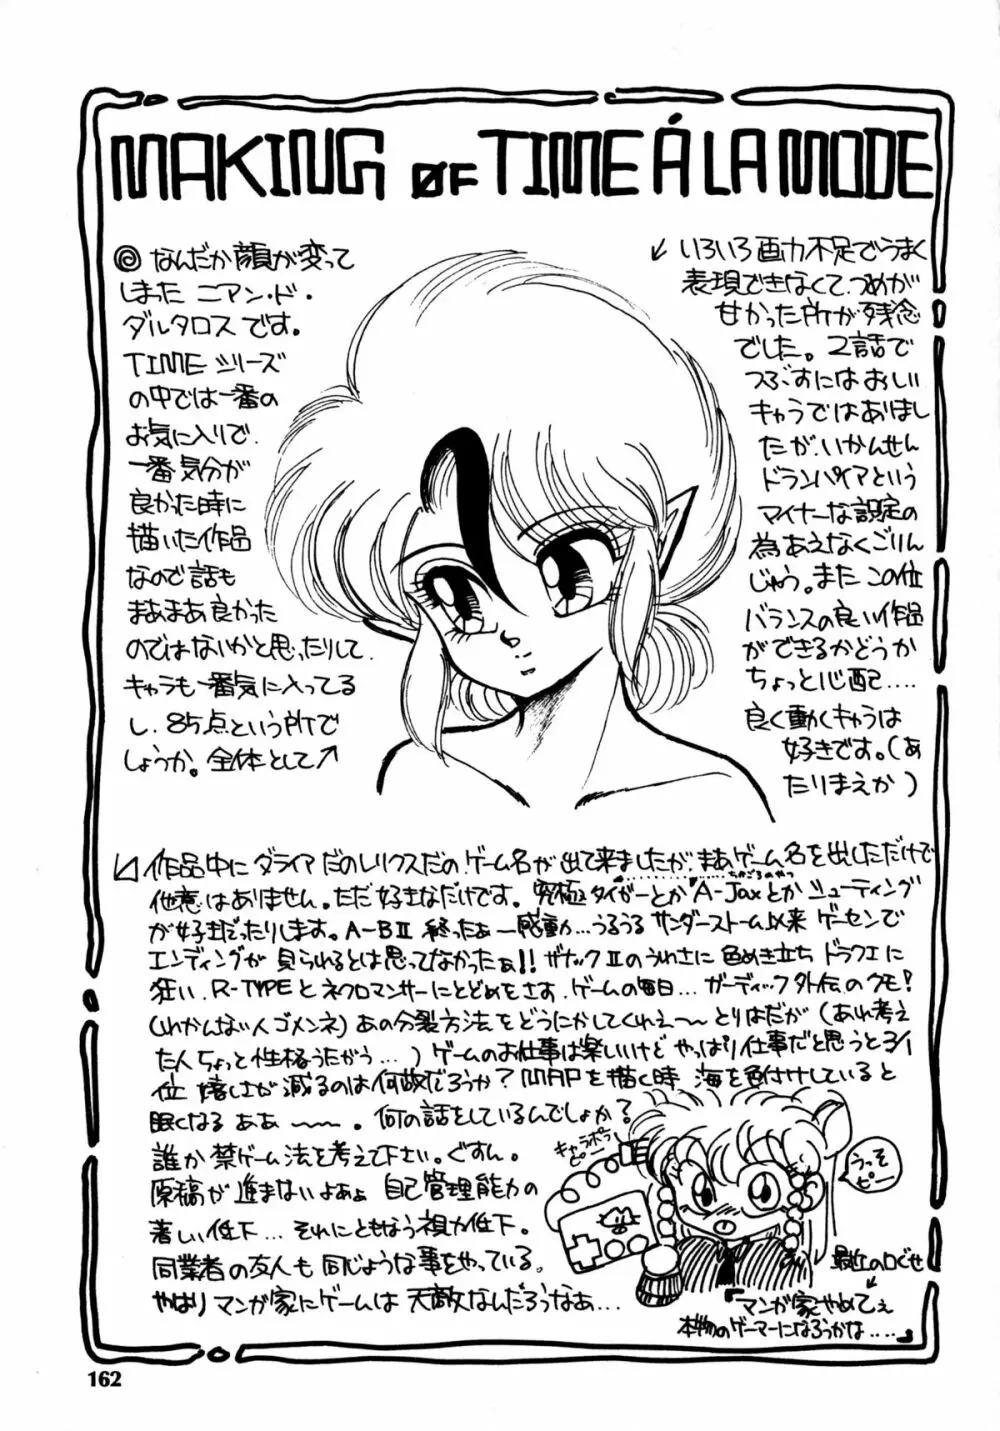 MAKING ØF TIME Á LA MODE
◎なんだか顔が変って
しまった ニアン・ド・
ダルタロスです。
TIMEシリーズ
の中では一番の
お気に入りで、
一番気分が
良かった時に
描いた作品
なので話も
まあまあ良かった
のではないかと思ったりして、
キャラも一番気に入ってる
し、85点という所で
しょうか。全体として↗
↙いろいろ画力不足でうまく
表現できなくて、つめが
甘かった所が残念
でした。2話で
つぶすにはおしい
キャラではありまし
たが、いかんせん
ドランパイアという
マイナーな設定の
為あえなくごりん
じゅう。またこの位
バランスの良い作品
ができるかどうか
ちょっと心配....
良く動くキャラは
好きです。(あ
たりまえか)
作品中にダライアだのレリクスだのゲーム名が出て来ましたが、まあゲーム名を出しただけで
他意はありません。ただ好きなだけです。究極タイガーとかA-Jaxとかシューティング
が好きだったりします。A-BⅡ 終ったぁー感動...うるうる サンダーストーム以来ゲーセンで
エンディングが見られるとは思ってなかったぁ!! ザナックⅡのうわさに色めき立ちドラクエに
狂い、R-TYPEとネクロマンサーにとどめをさす、ゲームの毎日...ガーディック外伝のクモ!
(わかんない人ゴメンネ)あの分裂方法をどうにかしてくれえ〜〜とりはだが(あれ考え
た人ちょっと性格うたがう...)ゲームのお仕事は楽しいけど やっぱり仕事だと思うと3/1
位 嬉しさが減るのは何故だろうか?MAPを描く時、海を色付けしていると
眠くなる ああ〜〜。何の話をしているんでしょうか?
誰か禁ゲーム法を考えて下さい。ぐすん。
原稿が進まないよぁぁ 自己管理能力の
著しい低下...それにともなう視力低下。
同業者の友人も同じような事をやっている。
やはりマンガ家にゲームは天敵なんだろうなあ...
キャラポラ
ピー
うっそ
ピー
最近の口ぐせ
「マンガ家やめてぇ
本物のゲーマーになろうかな....」
162